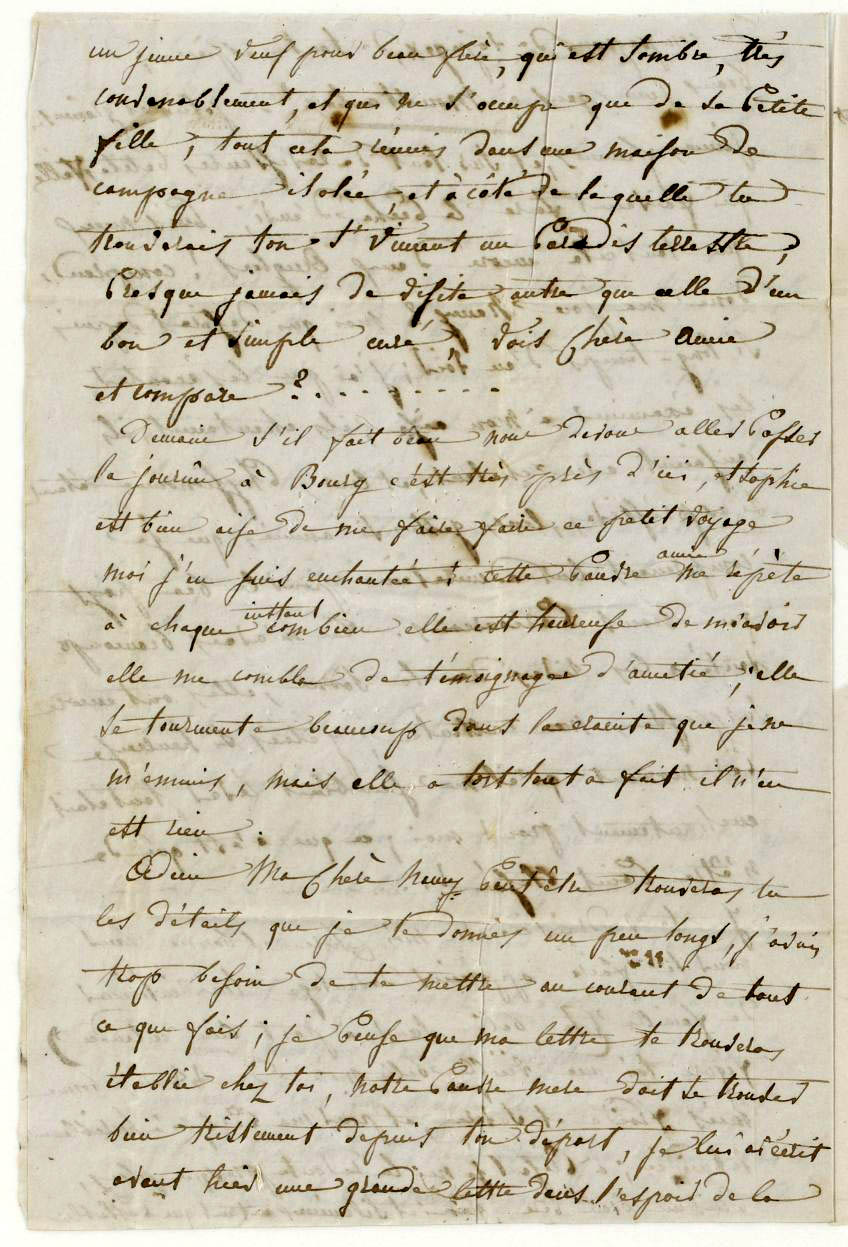 un jeune veuf pour beau frère, qui est sombre, très
convenablement, et qui ne s'occupe que de sa Petite
fille, tout cela réunis dans une maison de
campagne isolée, et à côté de laquelle tu
trouverais ton St Vincent un Paradis terrestre,
Presque jamais de visite autre que celle d'un
bon et simple curé, vois Chère amie
et compare ?..........
Demain s'il fait beau nous devons aller Passer
la journée à Bourg c'est très près d'ici, et sophie
est bien aise de me faire faire ce petit voyage
moi j'en suis enchantée cette Pauvre amie me répète
à chaque instant combien elle est heureuse de m'avoir
elle me comble de témoignages d'amitié, elle
se tourmente beaucoup dans la crainte que je ne
m'ennuis, mais elle a tort tout a fait il n'en
est rien.
Adieu Ma Chère Nancy Peut être trouveras tu
les détails que je te donnes un peu longs, j'avais
trop besoin de te mettre au courant de tout
ce que fais ; je Pense que ma lettre te trouveras
établie chez toi, notre Pauvre mere doit se trouver
bien tristement depuis ton départ, je lui ai écrit
avant hier une grande lettre dans l'espoir de la